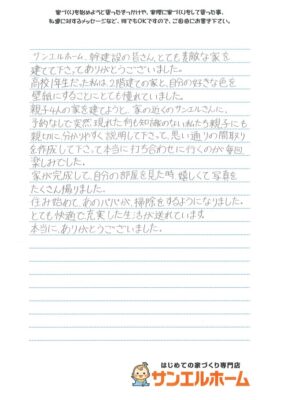 家づくりを始めようと思ったきっかけや、実際に家づくりをして思った事、
私達に対するメッセージなど、何でもOKですので、ご自由にお書き下さい。
サンエルホーム、幹建設の皆さん、とても素敵な家を
建てて下さってありがとうございました。
高校1年生だった私は、2階建ての家と、自分の好きな色を
壁紙にすることにとても憧れていました。
親子4人の家を建てようと、家の近くのサンエルさんに、
予約なしで突然現れた何も知識のない私たち親子にも
親切に、分かりやすく説明して下さって、思い通りの間取り
を作成して下さって、本当に打ち合わせに行くのが毎回
楽しみでした。
家が完成して、自分の部屋を見た時、嬉しくて写真を
たくさん撮りました。
住み始めて、あのパパが、掃除をするようになりました。
とても快適で充実した生活が送れています。
本当に、ありがとうございました。
はじめての家づくり専門店
サンエルホーム